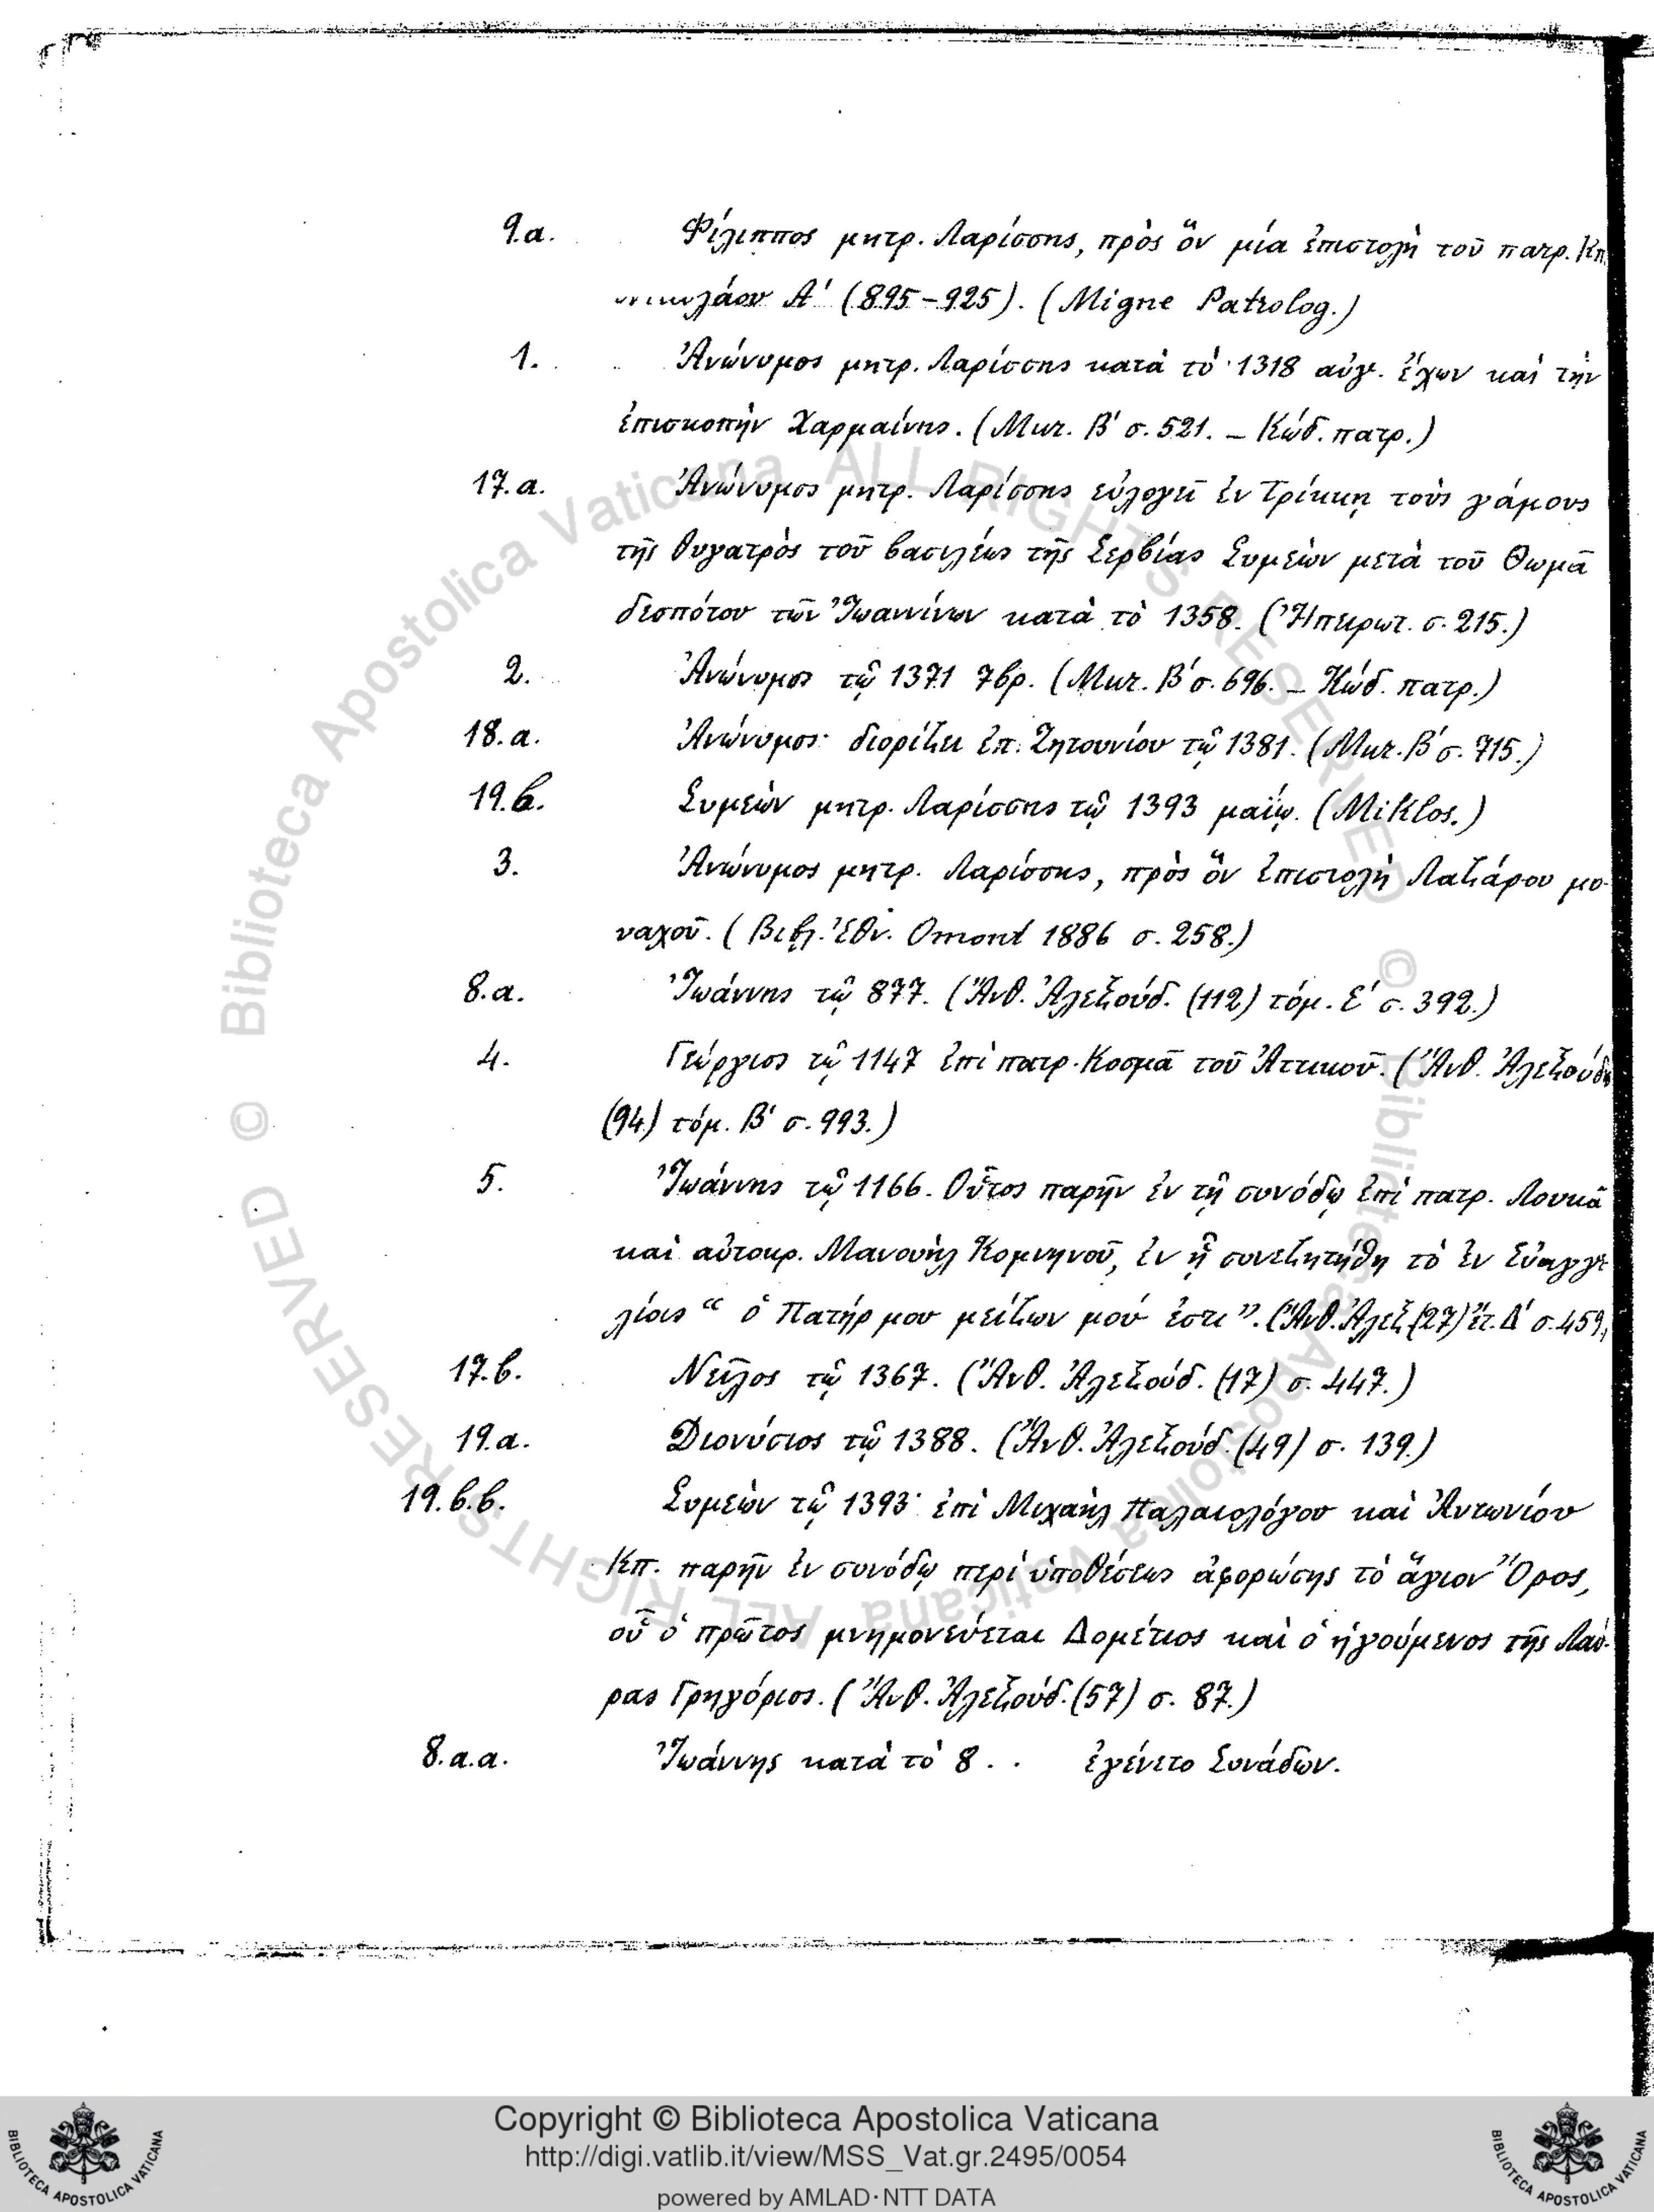 9.α. Φίλιππος μητρ. Λαρίσσης, πρὸς ὃν μία ἐπιστολὴ τοῦ πατρ. Κπ
Νικολάου Α' (895-925). (Migne Patrolog.)
1. Ἀνώνυμος μητρ. Λαρίσσης κατὰ τὸ 1318 αὐγ. ἔχων καὶ τὴν
ἐπισκοπὴν Χαρμαίνης. (Μικ. Β' σ. 521. — Κώδ. πατρ.)
17.α. Ἀνώνυμος μητρ. Λαρίσσης εὐλογεῖ ἐν Τρίκκῃ τοὺς γάμους
τῆς θυγατρὸς τοῦ βασιλέως τῆς Σερβίας Συμεὼν μετὰ τοῦ Θωμᾶ
δεσπότου τῶν Ἰωαννίνων κατὰ τὸ 1358. (Ἠπειρωτ. σ. 215.)
2. Ἀνώνυμος τῷ 1371 7βρ. (Μικ. Β' σ. 696. — Κώδ. πατρ.)
18.α. Ἀνώνυμος· διορίζει ἐπ. Ζητουνίου τῷ 1381. (Μικ. Β' σ. 715.)
19.β. Συμεὼν μητρ. Λαρίσσης τῷ 1393 μαΐῳ. (Miklos.)
3. Ἀνώνυμος μητρ. Λαρίσσης, πρὸς ὃν ἐπιστολὴ Λαζάρου μο-
ναχοῦ. (Βιβλ. Ἐθν. Omont 1886 σ. 258.)
8.α. Ἰωάννης τῷ 877. (Ἄνθ. Ἀλεξούδ. (112) τόμ. Ε' σ. 392.)
4. Γεώργιος τῷ 1147 ἐπὶ πατρ. Κοσμᾶ τοῦ Ἀττικοῦ. (Ἄνθ. Ἀλεξούδ.
(94) τόμ. Β' σ. 993.)
5. Ἰωάννης τῷ 1166. Οὗτος παρῆν ἐν τῇ συνόδῳ ἐπὶ πατρ. Λουκᾶ
καὶ αὐτοκρ. Μανουὴλ Κομνηνοῦ, ἐν ᾗ συνεζητήθη τὸ ἐν Εὐαγγε
λίοις “ ὁ Πατήρ μου μείζων μού ἐστι ”. (Ἄνθ. Ἀλεξ. (27) ἔτ. Δ' σ. 459,
17.β. Νεῖλος τῷ 1367. (Ἄνθ. Ἀλεξούδ. (17) σ. 447.)
19.α. Διονύσιος τῷ 1388. (Ἄνθ. Ἀλεξούδ. (49) σ. 139.)
19.β.β. Συμεὼν τῷ 1393· ἐπὶ Μιχαὴλ Παλαιολόγου καὶ Ἀντωνίου
Κπ. παρῆν ἐν συνόδῳ περὶ ὑποθέσεως ἀφορώσης τὸ ἅγιον Ὄρος,
οὗ ὁ πρῶτος μνημονεύεται Δομέτιος καὶ ὁ ἡγούμενος τῆς Λαύ-
ρας Γρηγόριος. (Ἄνθ. Ἀλεξούδ. (57) σ. 87.)
8.α.α. Ἰωάννης κατὰ τὸ 8 . . ἐγένετο Συνάδων.
© Biblioteca Apostolica Vaticana ALL RIGHTS RESERVED
© Biblioteca Apostolica Vaticana ALL RIGHTS RESERVED
Copyright © Biblioteca Apostolica Vaticana
http://digi.vatlib.it/view/MSS_Vat.gr.2495/0054
powered by AMLAD·NTT DATA
BIBLIOTECA APOSTOLICA VATICANA
BIBLIOTECA APOSTOLICA VATICANA